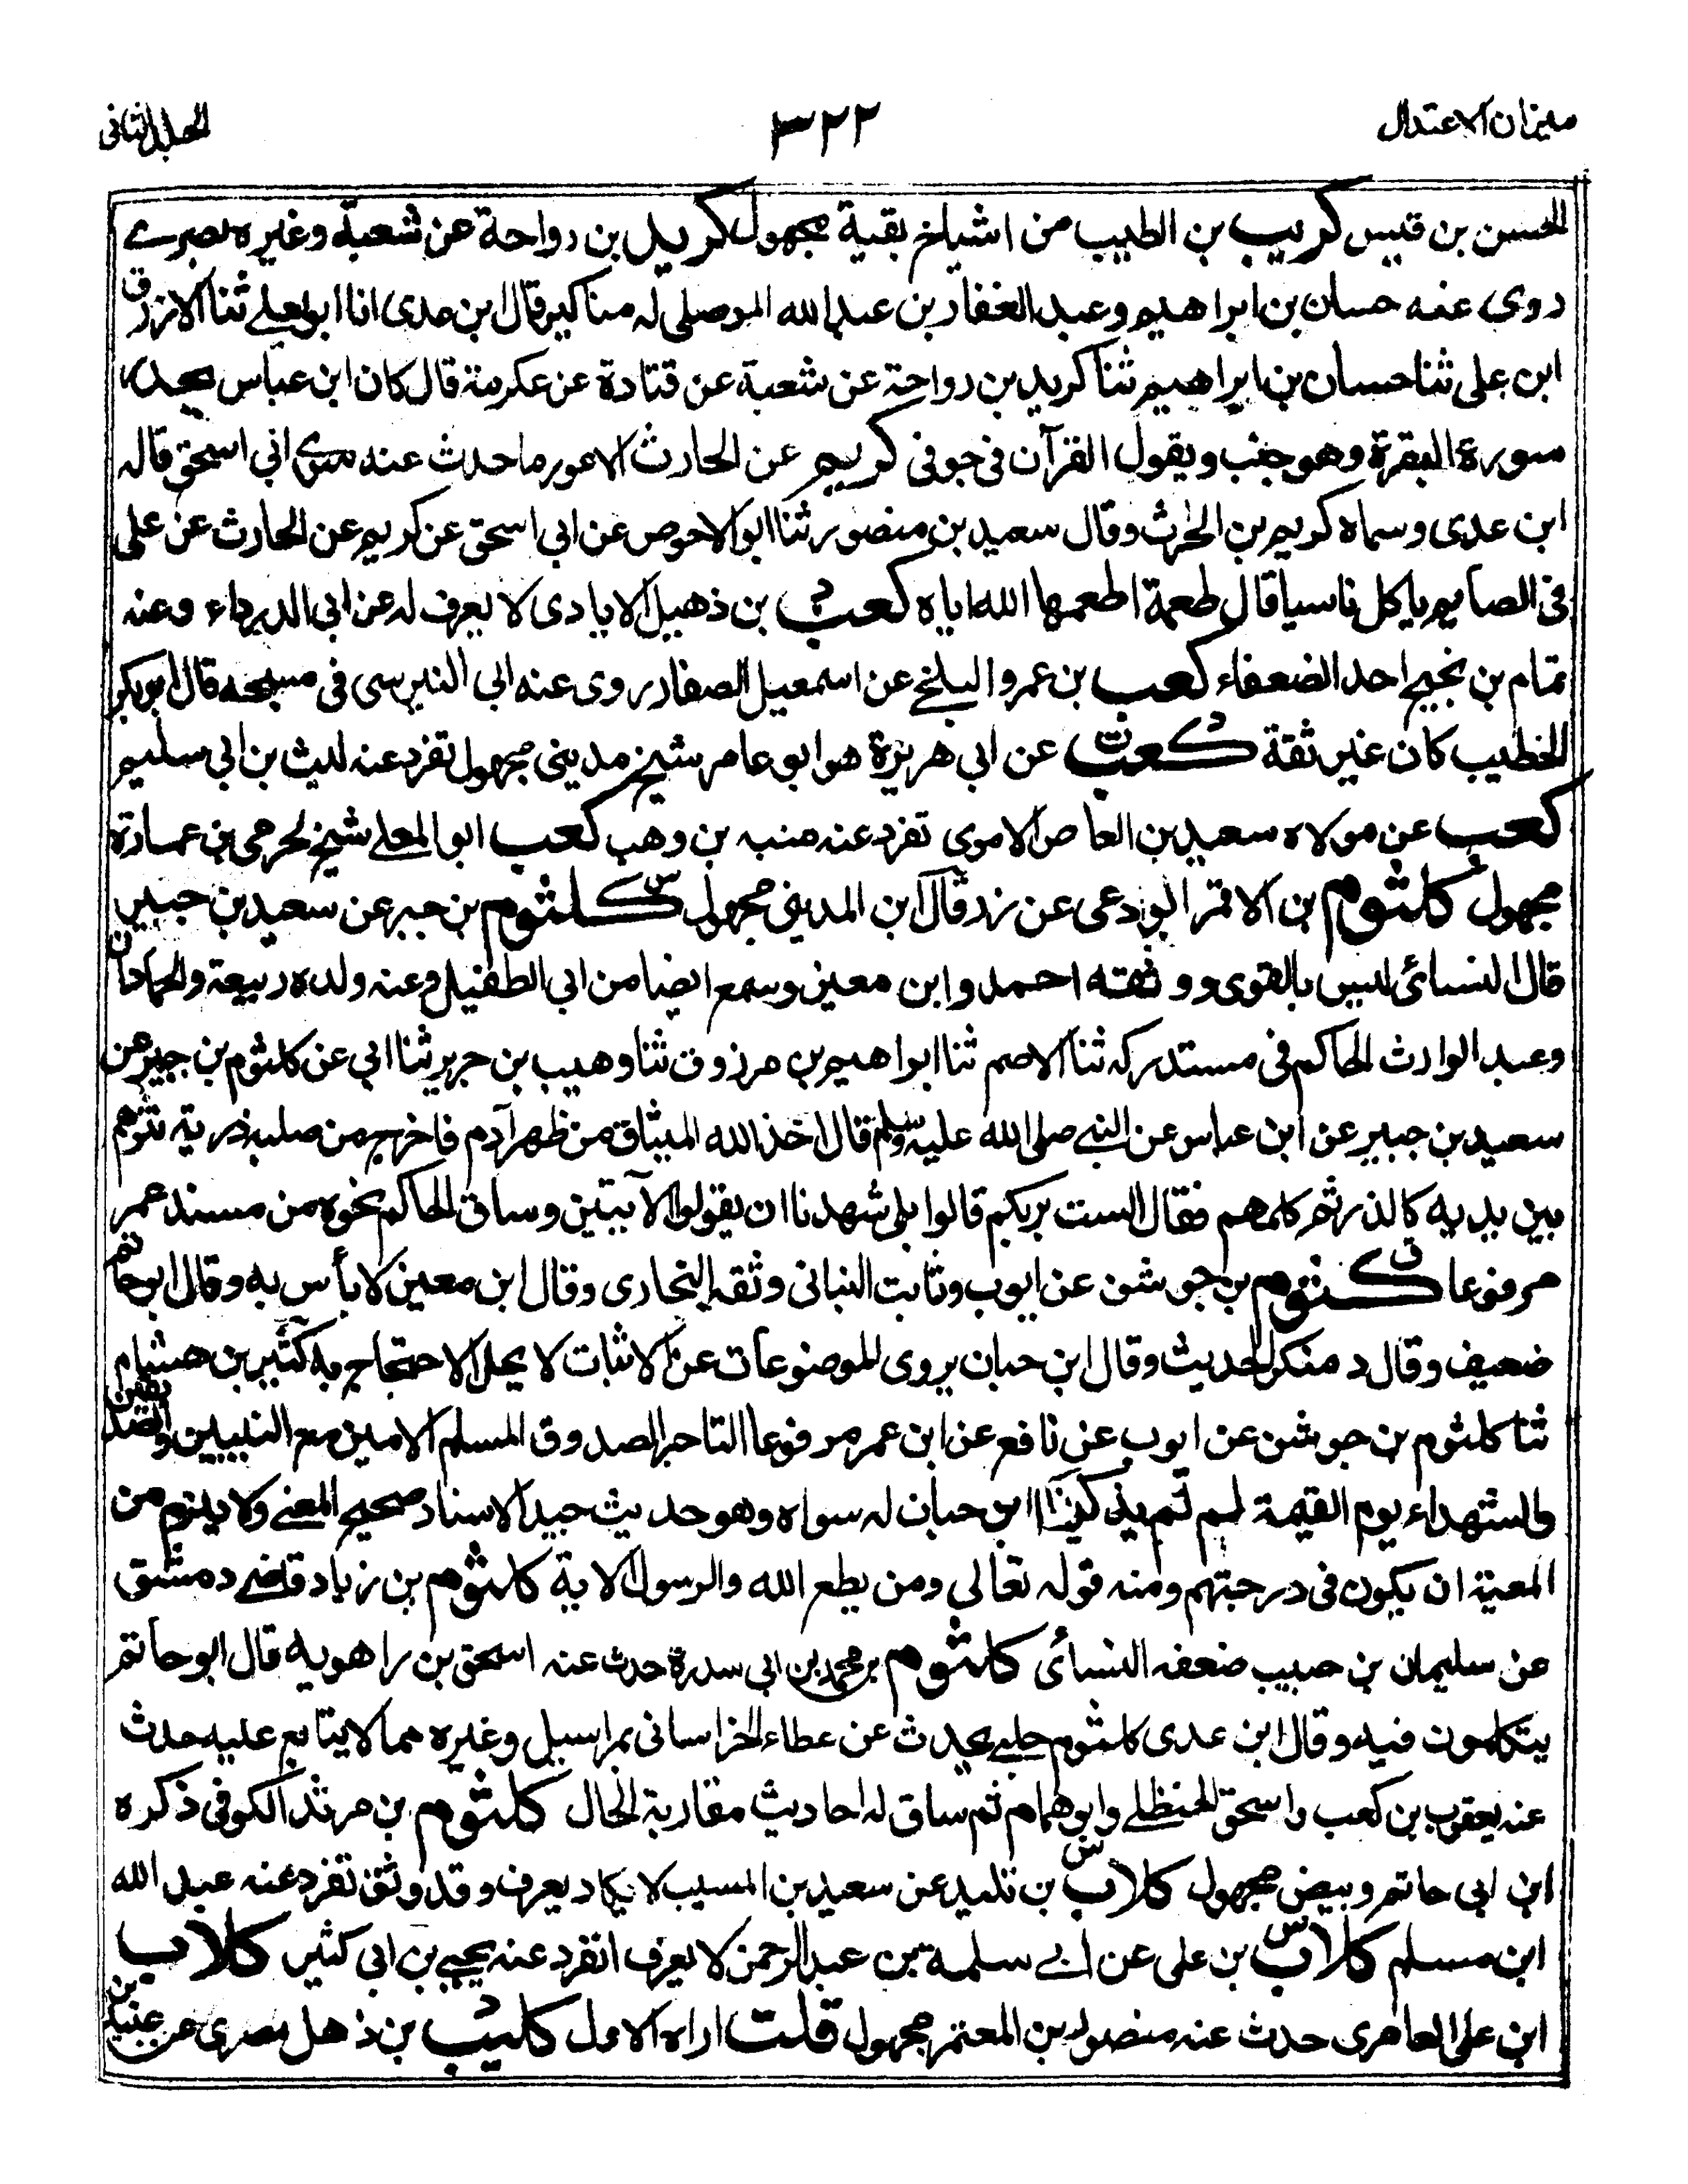 ميزان الاعتدال
٣٢٢
المجلد الثانى
الحسن بن قيس كريب بن الطيب من اشياخ بقية مجهول كريد بن رواحة عن شعبة وغيره بصرے
روى عنه حسان بن ابراهيم وعبد الغفار بن عبد الله الموصلى له مناكير قال ابن عدى انا ابو يعلے ثنا الازرق
ابن على ثنا حسان بن ابراهيم ثنا كريد بن رواحة عن شعبة عن قتادة عن عكرمة قال كان ابن عباس
سورة البقرة وهو جنب ويقول القرآن فى جوفى كريم عن الحارث الاعور ما حدث عنه سوى ابى اسحق قاله
ابن عدى وسماه كريم بن الحرث وقال سعيد بن منصور ثنا ابو الاحوص عن ابى اسحق عن كريم عن الحارث عن على
فى الصايم ياكل ناسيا قال طعمة اطعمها الله اياه كعب بن ذهيل الايادى لا يعرف له عن ابى الدرداء وعنه
تمام بن نجيح احد الضعفاء كعب بن عمرو البلخے عن اسمعيل الصفار روى عنه ابى النرسى فى مشيخته قال ابو بكر
الخطيب كان غير ثقة كعب عن ابى هريرة هو ابو عامر شيخ مدينى مجهول تفرد عنه ليث بن ابى سليم
كعب عن مولاه سعيد بن العاص الاموى تفرد عنه منبه بن وهب كعب ابو المعلے شيخ لحرمى بن عمارة
مجهول كلثوم بن الاقمر الوادعى عن زر قال ابن المدينى مجهول كلثوم بن جبر عن سعيد بن جبير
قال النسائى ليس بالقوى ووثقه احمد وابن معين وسمع ايضا من ابى الطفيل وعنه ولده ربيعة والحمادان
وعبد الوارث الحاكم فى مستدركه ثنا الاصم ثنا ابراهيم بن مرزوق ثنا وهيب بن جرير ثنا ابى عن كلثوم بن جبير عن
سعيد بن جبير عن ابن عباس عن النبے صلى الله عليه وسلم قال اخذ الله الميثاق من ظهر آدم فاخرج من صلبه ذرية نثرهم
بين يديه كالذر ثم كلمهم فقال الست بربكم قالوا بلى شهدنا ان يقولوا الآيتين وساق الحاكم نحوه من مسند عمر
مرفوعا كلثوم بن جوشن عن ايوب وثابت البنانى وثقه البخارى وقال ابن معين لا بأس به وقال ابو حاتم
ضعيف وقال د منكر الحديث وقال ابن حبان يروى الموضوعات عن الاثبات لا يحل الاحتجاج به كثير بن هشام
ثنا كلثوم بن جوشن عن ايوب عن نافع عن ابن عمر مرفوعا التاجر الصدوق المسلم الامين مع النبيين والصديقين
والشهداء يوم القيمة لم ابن حبان له سواه وهو حديث جيد الاسناد صحيح المعنے ولا يلزم من
المعية ان يكون فى درجتهم ومنه قوله تعالى ومن يطع الله والرسول الاية كلثوم بن زياد قاضے دمشق
عن سليمان بن حبيب ضعفه النسائى كلثوم بن محمد بن ابى سدرة حدث عنه اسحق بن راهويه قال ابو حاتم
يتكلمون فيه وقال ابن عدى كلثوم حلبے يحدث عن عطاء الخراسانى بمراسيل وغيره مما لا يتابع عليه حدث
عنه يعقوب بن كعب واسحق الحنظلے وابو همام ثم ساق له احاديث مقاربة الحال كلثوم بن مرثد الكوفى ذكره
ابن ابى حاتم وبيض مجهول كلاب س بن تليد عن سعيد بن المسيب لا يكاد يعرف وقد وثق تفرد عنه عبد الله
ابن مسلم كلاب س بن على عن ابے سلمة بن عبد الرحمن لا يعرف انفرد عنه يحيے بن ابى كثير كلاب
ابن على العامرى حدث عنه منصور بن المعتمر مجهول قلت اراه الاول كليب بن ذهل مصرى عن عبيد بن